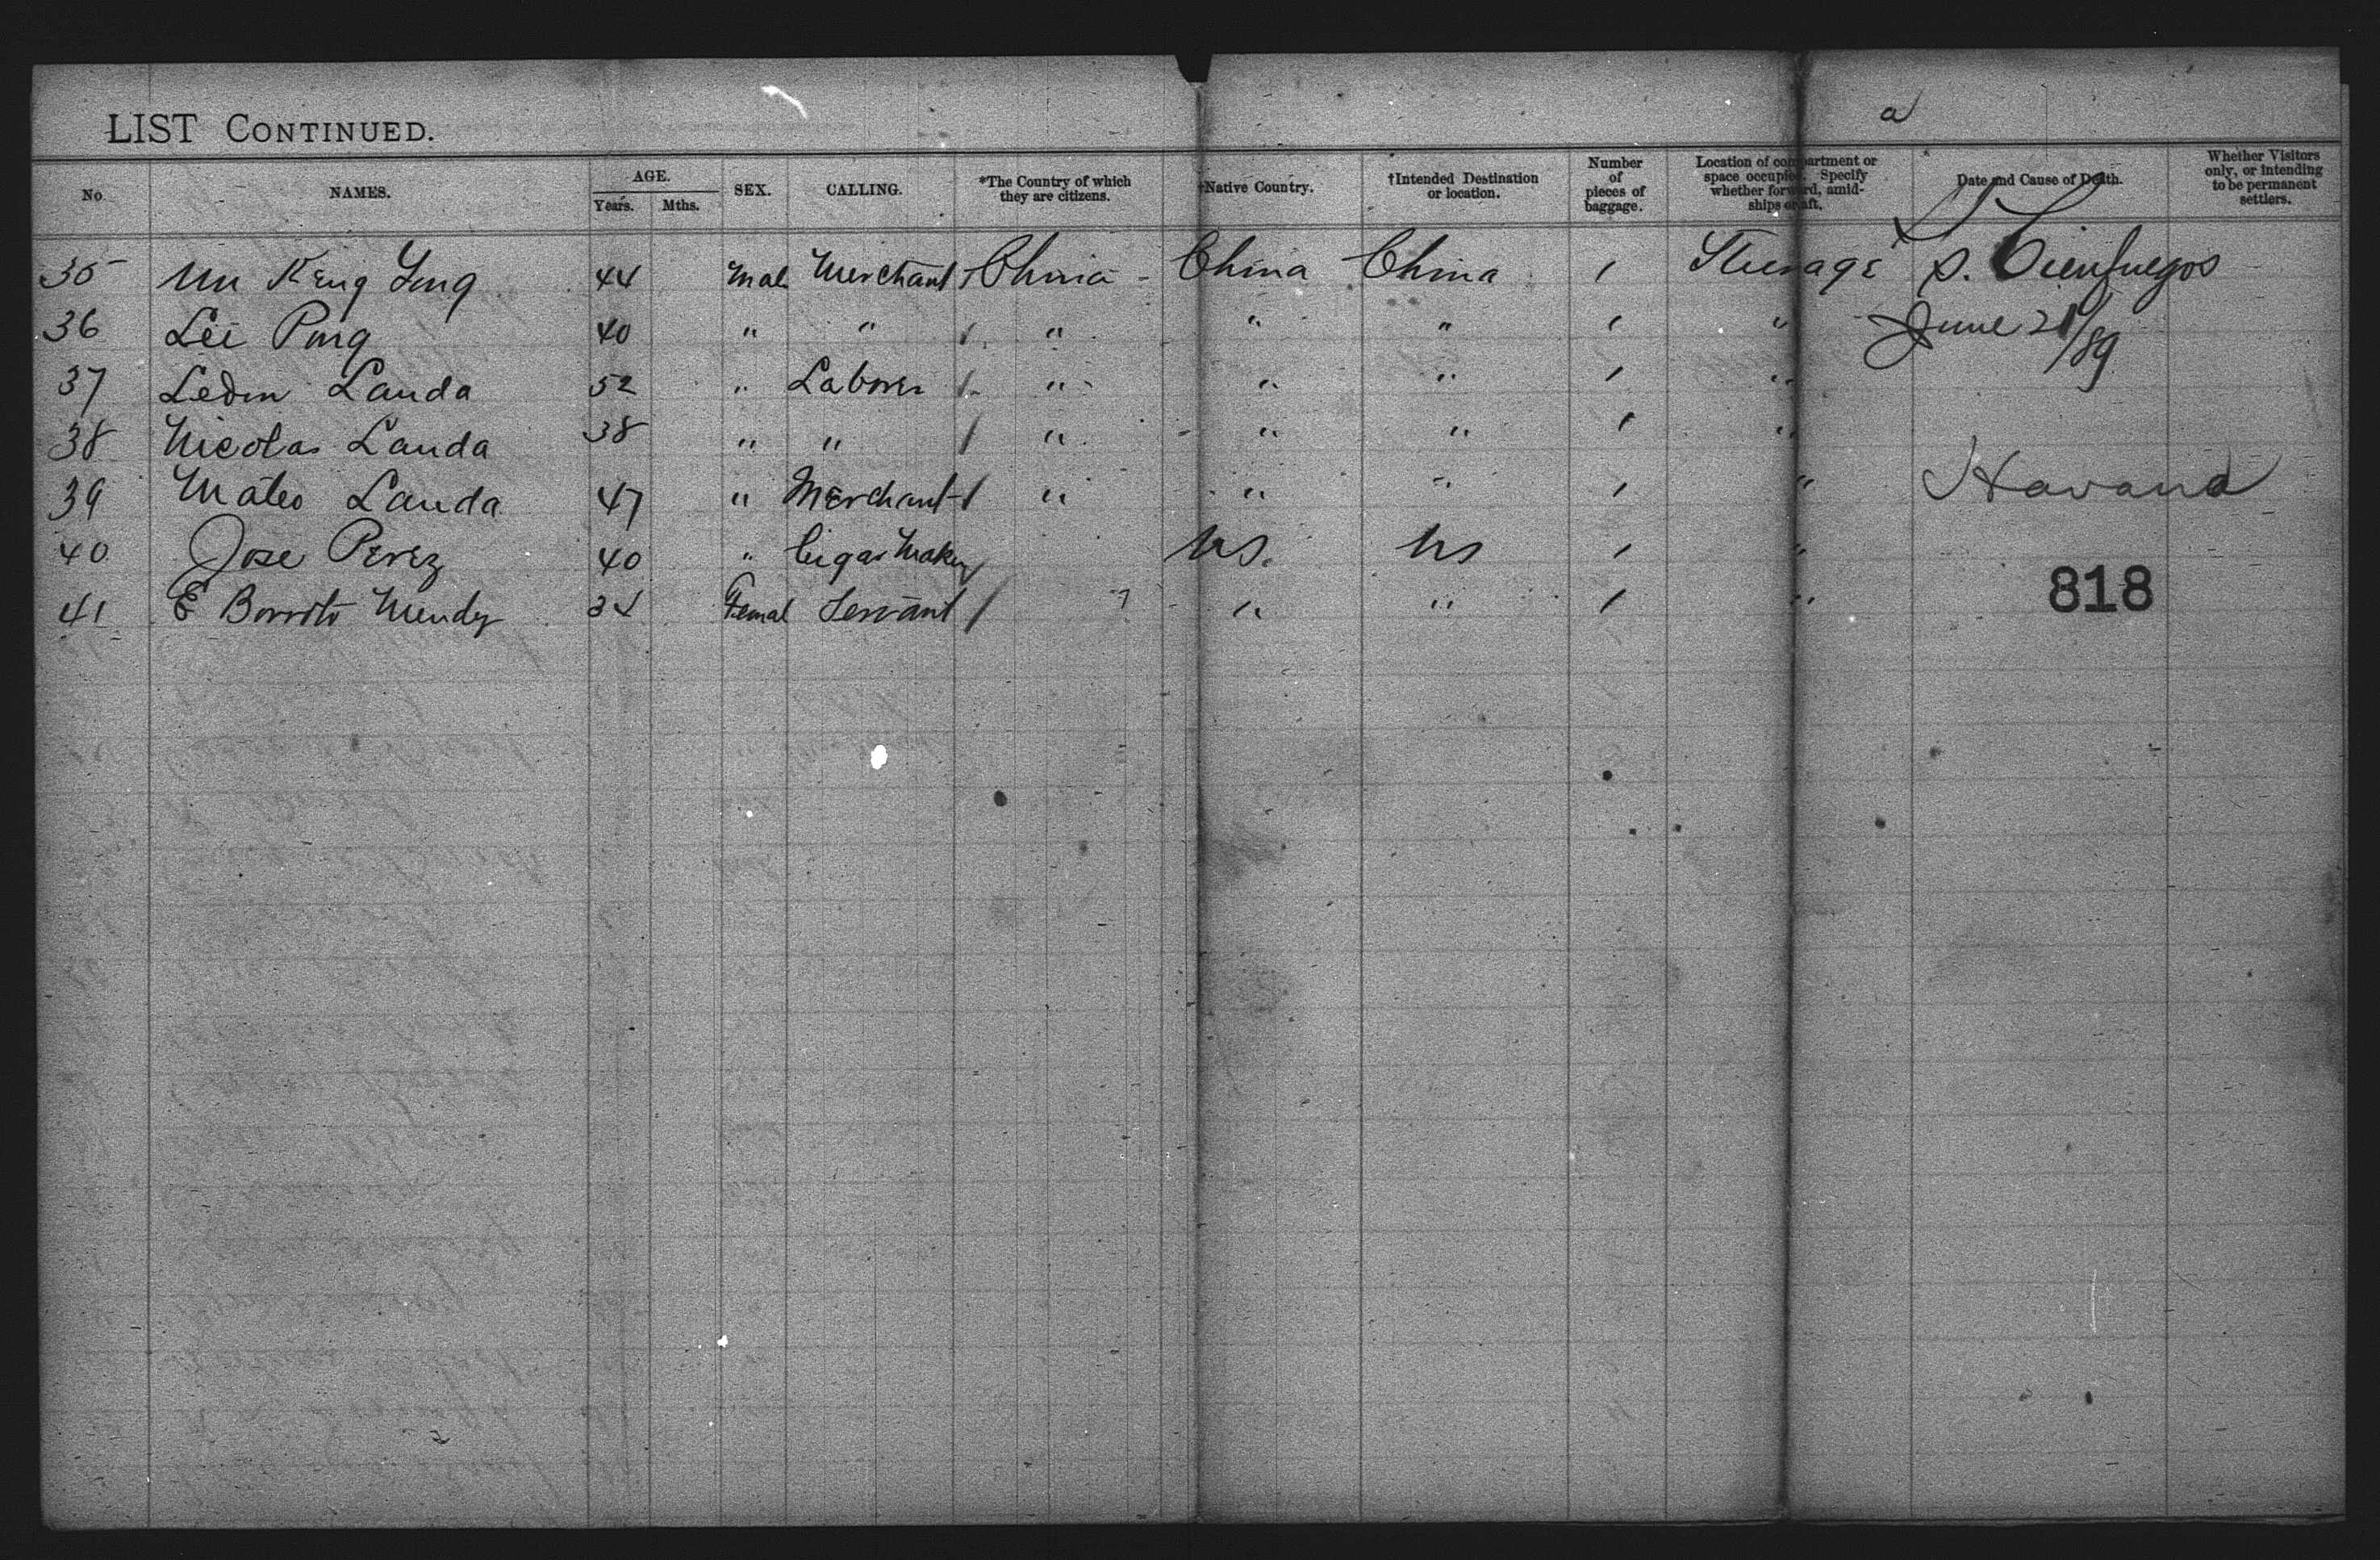 a
LIST CONTINUED.
No. NAMES. AGE. Years. Mths. SEX. CALLING. *The Country of which they are citizens. †Native Country. †Intended Destination or location. Number of pieces of baggage. Location of compartment or space occupied. Specify whether forward, amidships or aft. Date and Cause of Death. Whether Visitors only, or intending to be permanent settlers.
35 Keng 44 Mal Merchant 1 China China China 1 Steerage S. S. Cienfuegos
36 Lei Pong 40 " " 1 " " " 1 " June 21/89
37 Landa 52 " Laborer 1 " " " 1 "
38 Nicolas Landa 38 " " 1 " " " 1 "
39 Mateo Landa 47 " Merchant 1 " " " 1 " Havana
40 Jose Perez 40 " Cigar Maker / US. US 1 "
41 E 34 Femal Servant / " " 1 "
818